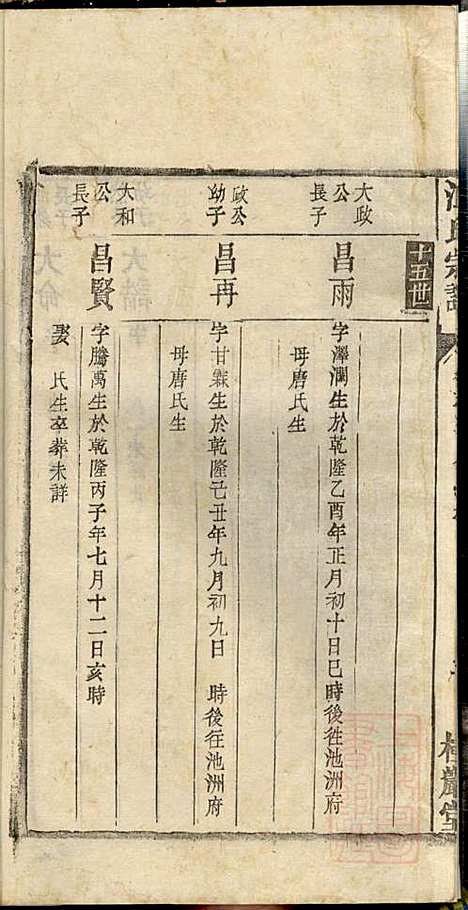 氏宗譜
桂嚴堂
十五世
大政公長子
昌雨
字澤潤生於乾隆乙酉年正月初十日巳時後徃池洲府
母唐氏生
政公幼子
昌再
字甘霖生於乾隆己丑年九月初九日 時後徃池洲府
母唐氏生
大和公長子
昌賢
字騰萬生於乾隆丙子年七月十二日亥時
娶 氏生卒葬未詳